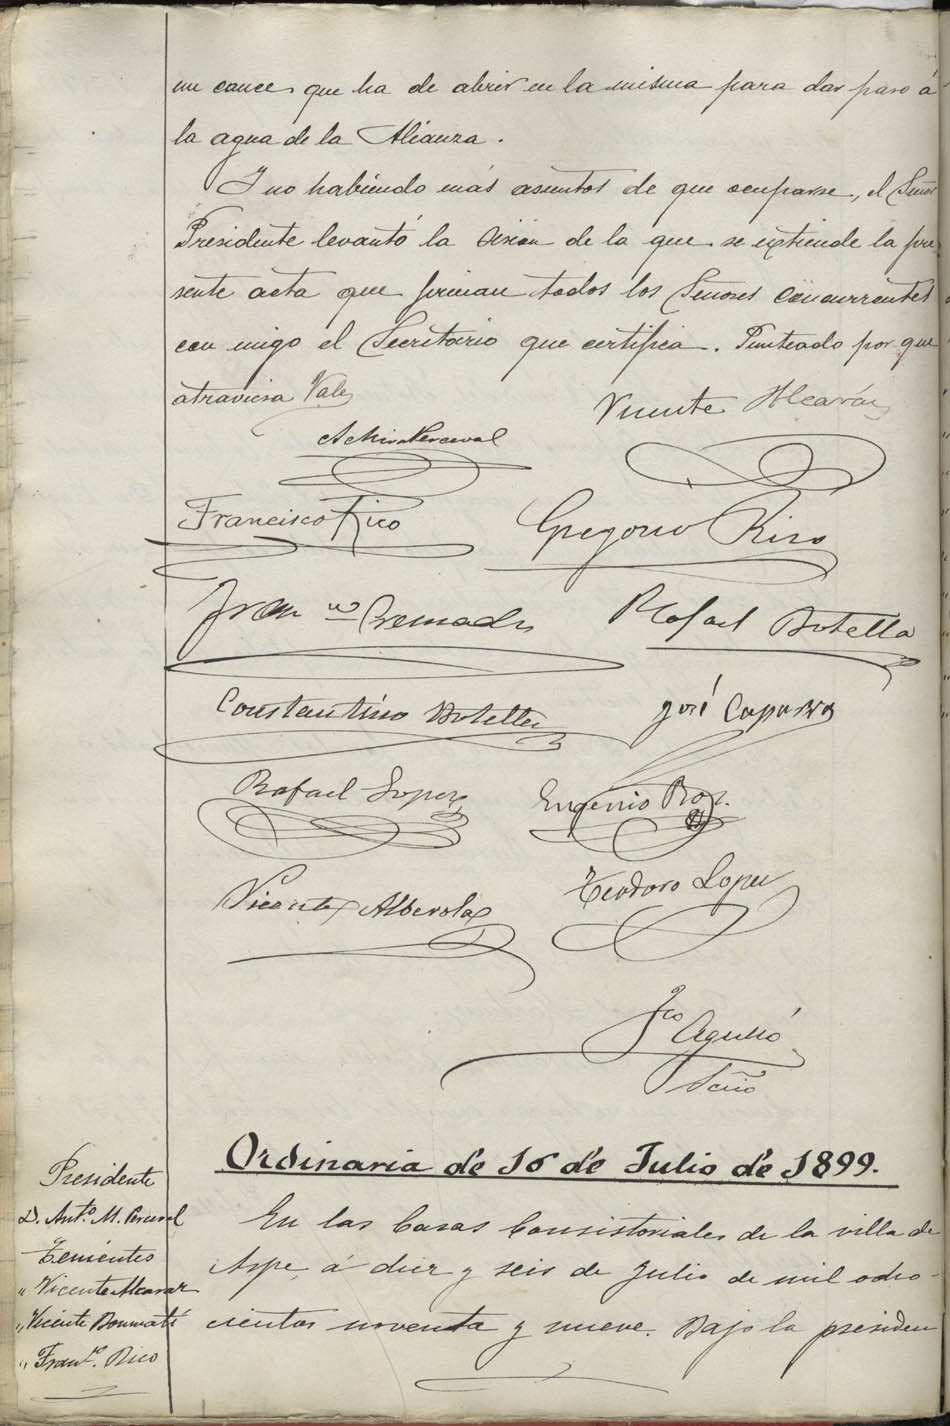 un cauce que ha de abrir en la misma para dar paso á
la agua de la Alianza.
Y no habiendo más asuntos de que ocuparse, el Señor
Presidente levantó la sesión de la que se extiende la pre
sente acta que firman todos los Señores concurrentes
con migo el Secretario que certifica. Punteado por que
atraviesa Vale
Vicente Alcaráz
Perceval
Francisco Rico
Gregorio Rizo
Fran co Cremades
Rafael Botella
Constantino Botella
José Caparros
Rafael Lopez
Eugenio
Vicente Alberola
Teodoro Lopez
Fco Agulló
Srio
Ordinaria de 16 de Julio de 1899.
Presidente
D. Anto. M. Perceval
Tenientes
" Vicente Alcaraz
" Vicente Bonmatí
" Franco. Rico
En las Casas Consistoriales de la villa de
Aspe á diez y seis de Julio de mil ocho-
cientos noventa y nueve. Bajo la presiden